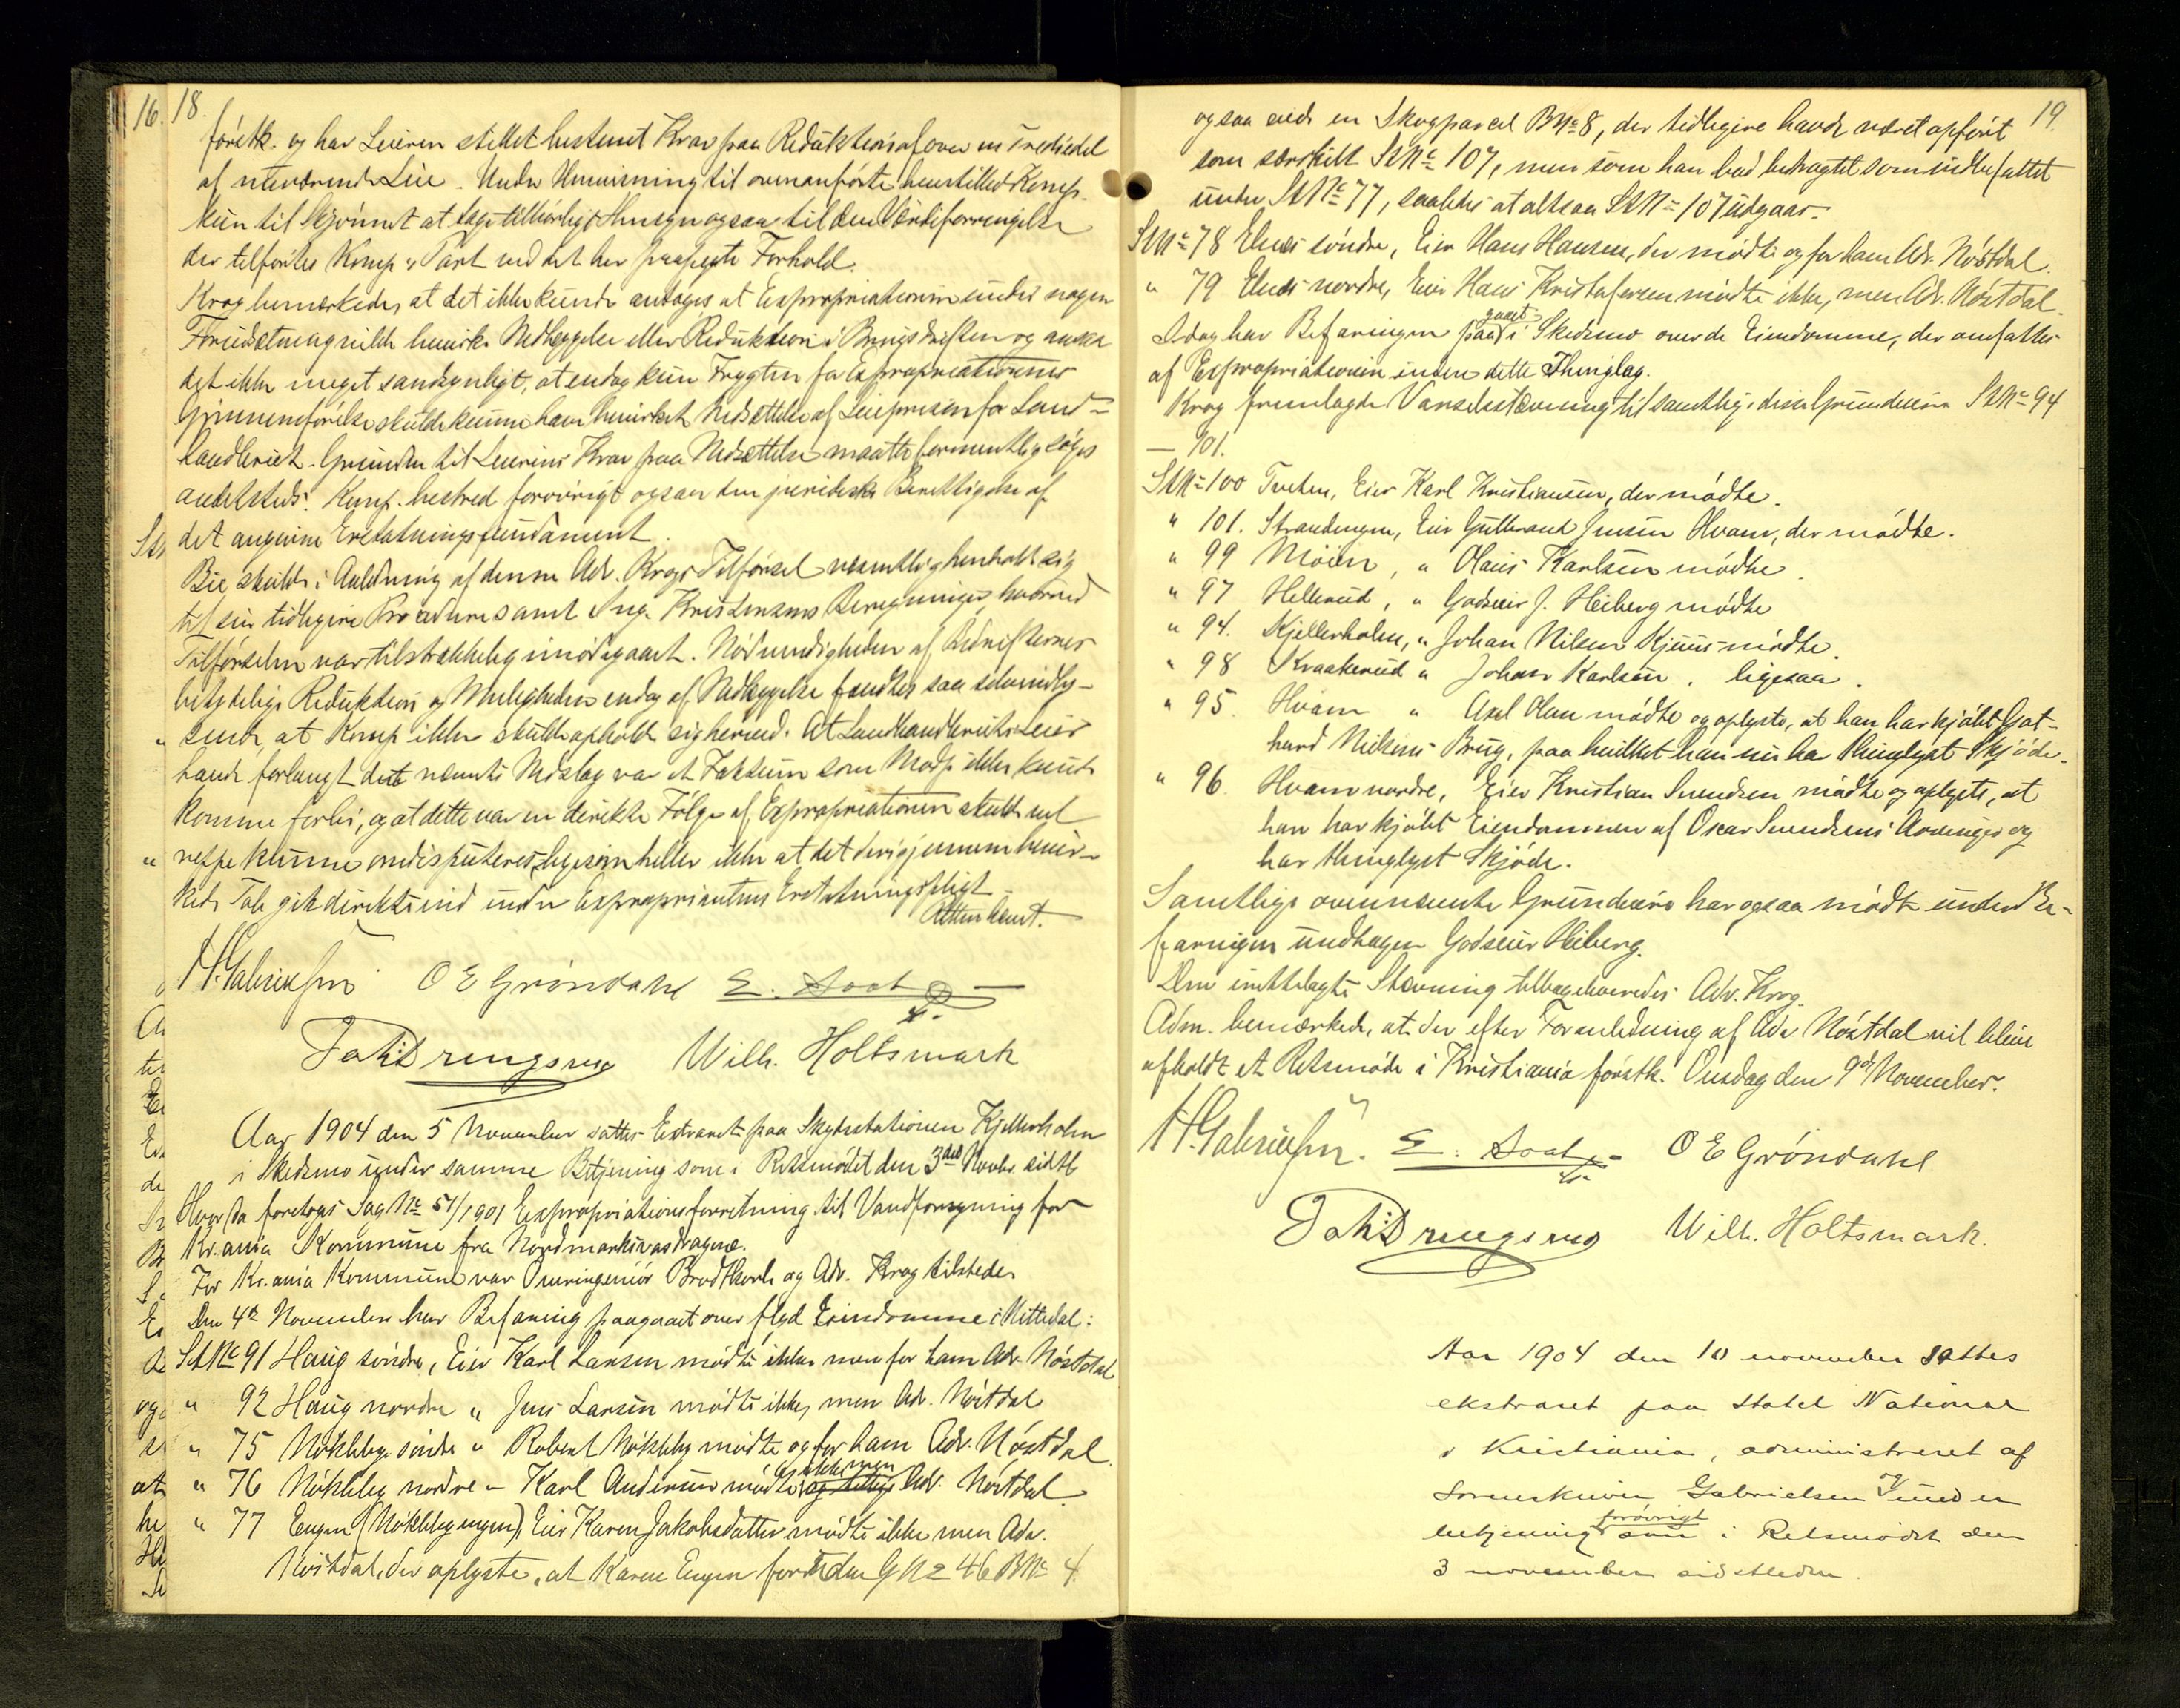 18.
førstk. og har Leieren stillet bestemt Krav paa Reduktion af over en Trediedel
af nuværende Leie. Under Henvisning til ovenanførte henstilled Komp.
kun til Skjønnet at tage tilbørligt Hensyn ogsaa til den Værdiforringelse
der tilførtes Komp's Part ved det her paapegte Forhold.
Krog bemerkede, at det ikke kunde antages at Expropriationen under nogen
Forudsætning vilde bevirke Nedlæggelse eller Reduktion i Brugsdriften og ansaa
det ikke meget sandsynligt, at endog kun Frygten for Expropriationens
Gjennemførelse skulde kunne have bevirket Nedsættelse af Leieprisen for Land-
handleriet. Grunden til Leierens Krav paa Nedsættelse maatte formentlig søges
andetsteds. Komp. bestred forøvrigt ogsaa den juridiske Berettigelse af
det angivne Erstatningsfundament.
Bie skulde i Anledning af denne Adv. Krogs Tilførsel væsentlig henholdt sig
til sin tidligere Procedure samt Ing. Kristensens Beregninger, hvorved
Tilførselen var tilstrækkelig imødegaaet. Nødvendigheden af Bedriftens
betydelige Reduktion og Muligheden endog af Nedlæggelse fandtes saa selvindly-
sende, at Komp ikke skulde opholde sig herved. At Landhandleriets Leier
havde forlangt det nævnte Nedslag var et Faktum som Modp ikke kunde
komme forbi, og at dette var en direkte Følge af Expropriationen skulde vel
neppe kunne omdisputeres, ligesom heller ikke at det derigjennem bevir-
kede Tab gik direkte ind under Expropriantens Erstatningspligt –
Atterkjent.
H. Gabrielsen O E Gröndahl E. Soot
Wilh. Holtsmark
Aar 1904 den 5 November sattes Extraret paa Skydsstationen Kjellerholen
i Skedsmo under samme Betjening som i Retsmødet den 3die Novbr. sidstl
Hvor da foretoges Sag No 51/1901 Expropriationsforretning til Vandforsyning for
Kr.ania Kommune fra Nordmarksvasdragene.
For Kr.ania Kommune var Overingeniør Brodtkorb og Adv. Krog tilstede.
Den 4de November har Befaring paagaaet over flgd Eiendomme i Nittedal:
St No 91 Haug søndre, Eier Karl Larsen mødte ikke men for ham Adv. Nöstdal
" 92 Haug nordre " Jens Larsen mødte ikke, men Adv. Nöstdal
" 75 Nökkleby søndre " Robert Nökkleby mødte og for ham Adv. Nöstdal.
" 76 Nökkleby nordre – Karl Andersen mødte ikke men Adv. Nöstdal.
" 77 Engen (Nökklebyengen), Eier Karen Jakobsdatter mødte ikke men Adv.
Nöstdal, der oplyste, at Karen Engen foruden G No 46 B No 4.
19.
ogsaa eiede en Skogparcel B No 8, der tidligere havde været opført
som særskilt St No 107, men som han bad betragtet som indbefattet
under St No 77, saaledes at altsaa St No 107 udgaar.
St No 78 Elnes søndre, Eier Hans Hansen, der mødte og for ham Adv. Nöstdal.
" 79 Elnes nordre, Eier Hans Kristofersen mødte ikke, men Adv. Nöstdal.
Idag har Befaringen paagaaet i Skedsmo over de Eiendomme, der omfattes
af Expropriationen inden dette Thinglag.
Krog fremlagde Varselsstævning til samtlige disse Grundeiere St No 94
– 101.
St No 100 Tveten, Eier Karl Kristiansen, der mødte.
" 101. Strandengen, Eier Gulbrand Jensen Hvam, der mødte.
" 99 Moen, " Olaus Karlsen mødte.
" 97 Hellerud, " Godseier J. Heiberg mødte
" 94. Kjellerholen, " Johan Nilsen Kjuus mødte.
" 98 Kraakerud " Johan Karlsen, ligesaa.
" 95. Hvam " Axel Olsen mødte og oplyste, at han har kjøbt Got-
hard Nielsens Brug, paa hvilket han nu har thinglyst Skjøde.
" 96. Hvam nordre, Eier Kristian Svendsen mødte og oplyste, at
han har kjøbt Eiendommen af Oscar Svendsens Arvinger og
har thinglyst Skjøde.
Samtlige ovennævnte Grundeiere har ogsaa mødt under Be-
faringen undtagen Godseier Heiberg.
Den irettelagte Stævning tilbageleveredes Adv. Krog.
Adm. bemærkede, at der efter Foranledning af Adv Nöstdal vil blive
afholdt et Retsmøde i Kristiania førstk. Onsdag den 9de November.
H. Gabrielsen. E. Soot O E Gröndahl
Wilh. Holtsmark.
Aar 1904 den 10 november sattes
ekstraret paa Hotel National
i Kristiania, administreret af
Sorenskriver Gabrielsen
betjening forøvrigt som i Retsmødet den
3 november sidstleden.